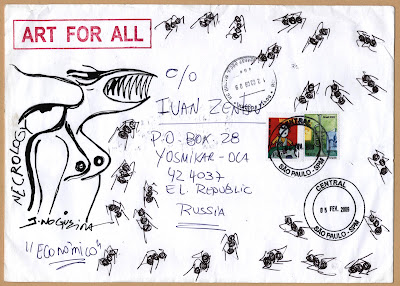 ART FOR ALL
c/o
IVAN
P.O. BOX. 28
YOSHKAR-OLA
424037
EL. REPUBLIC
RUSSIA
NECROLOGY
"ECONÔMICO"
CENTRAL
SÃO PAULO - SPM
CENTRAL
05 FEV. 2009
SÃO PAULO - SPM